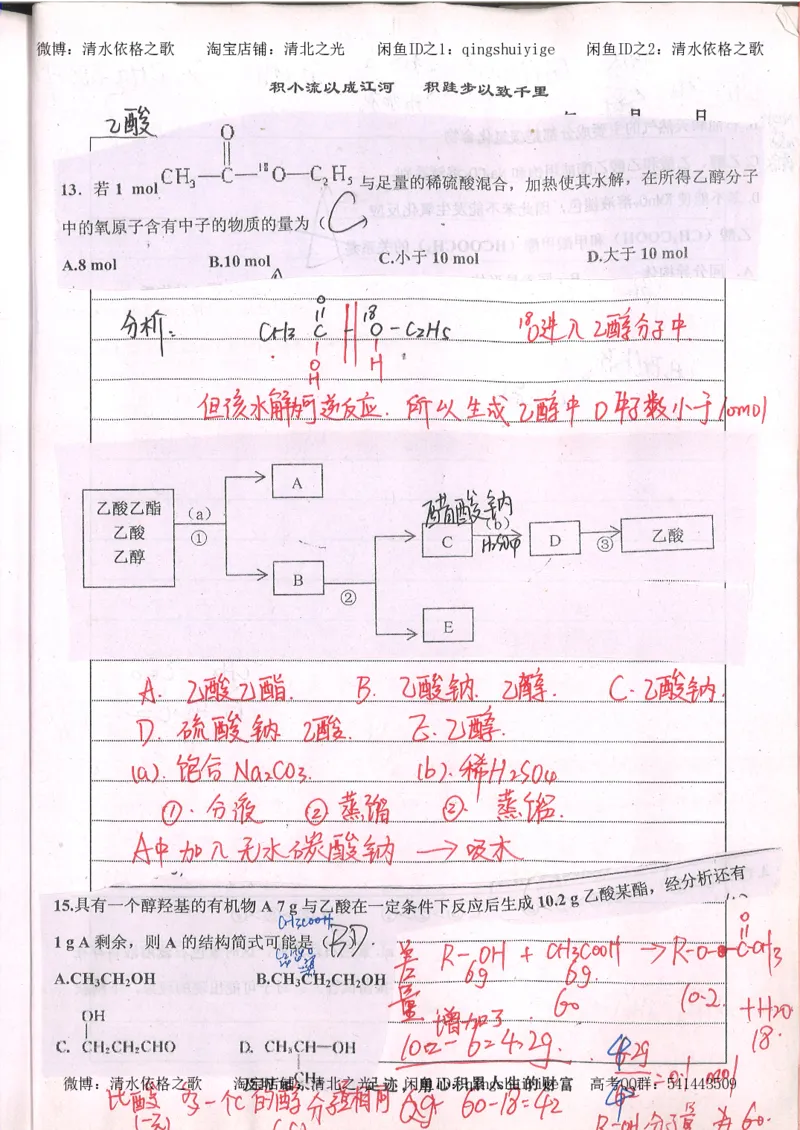 微博：清水依格之歌 淘宝店铺：清北之光 闲鱼ID之1：qingshuiyige 闲鱼ID之2：清水依格之歌
积小流以成江河 积跬步以致千里
月 日
乙酸
13．若 1 mol CH₃—C(=O)—¹⁸O—C₂H₅ 与足量的稀硫酸混合，加热使其水解，在所得乙醇分子
中的氧原子含有中子的物质的量为（ C
A.8 mol B.10 mol C.小于 10 mol D.大于 10 mol
分析： CH3 C(=O) - ¹⁸O - C2H5 ¹⁸O进入乙醇分子中.
O H
H
但该水解为可逆反应. 所以生成乙醇中 数小于10mol
乙酸乙酯
乙酸
乙醇
（a）
①
A
B
②
醋酸钠
C
（b）
H2SO4
D
③
乙酸
E
A. 乙酸乙酯. B. 乙酸钠. 乙醇. C. 乙酸钠.
D. 硫酸钠 乙酸. E. 乙醇.
(a). 饱合 Na2CO3. (b). 稀H2SO4
①. 分液 ② 蒸馏 ②. 蒸馏.
A中加入无水碳酸钠 → 吸水
15.具有一个醇羟基的有机物 A 7 g 与乙酸在一定条件下反应后生成 10.2 g 乙酸某酯，经分析还有
CH3COOH
1 g A 剩余，则 A 的结构简式可能是（ BD ．
A.CH₃CH₂OH B.CH₃CH₂CH₂OH
OH
C. CH₂CH₂CHO D. CH₃CH—OH
CH₃
差量 R-OH + CH3COOH → R-O-C(=O)-CH3
6g 6g 10.2 +H2O
60 18.
增加了
10.2-6=4.2g.
4.2g
42
=0.1mol
微博：清水依格之歌 淘宝店铺：清北之光 闲鱼ID之1：qingshuiyige 高考QQ群：541443509
足迹，用心积累人生的财富
比酸 多一个C的醇分子量相同 60-18=42
R-OH分子量为60.